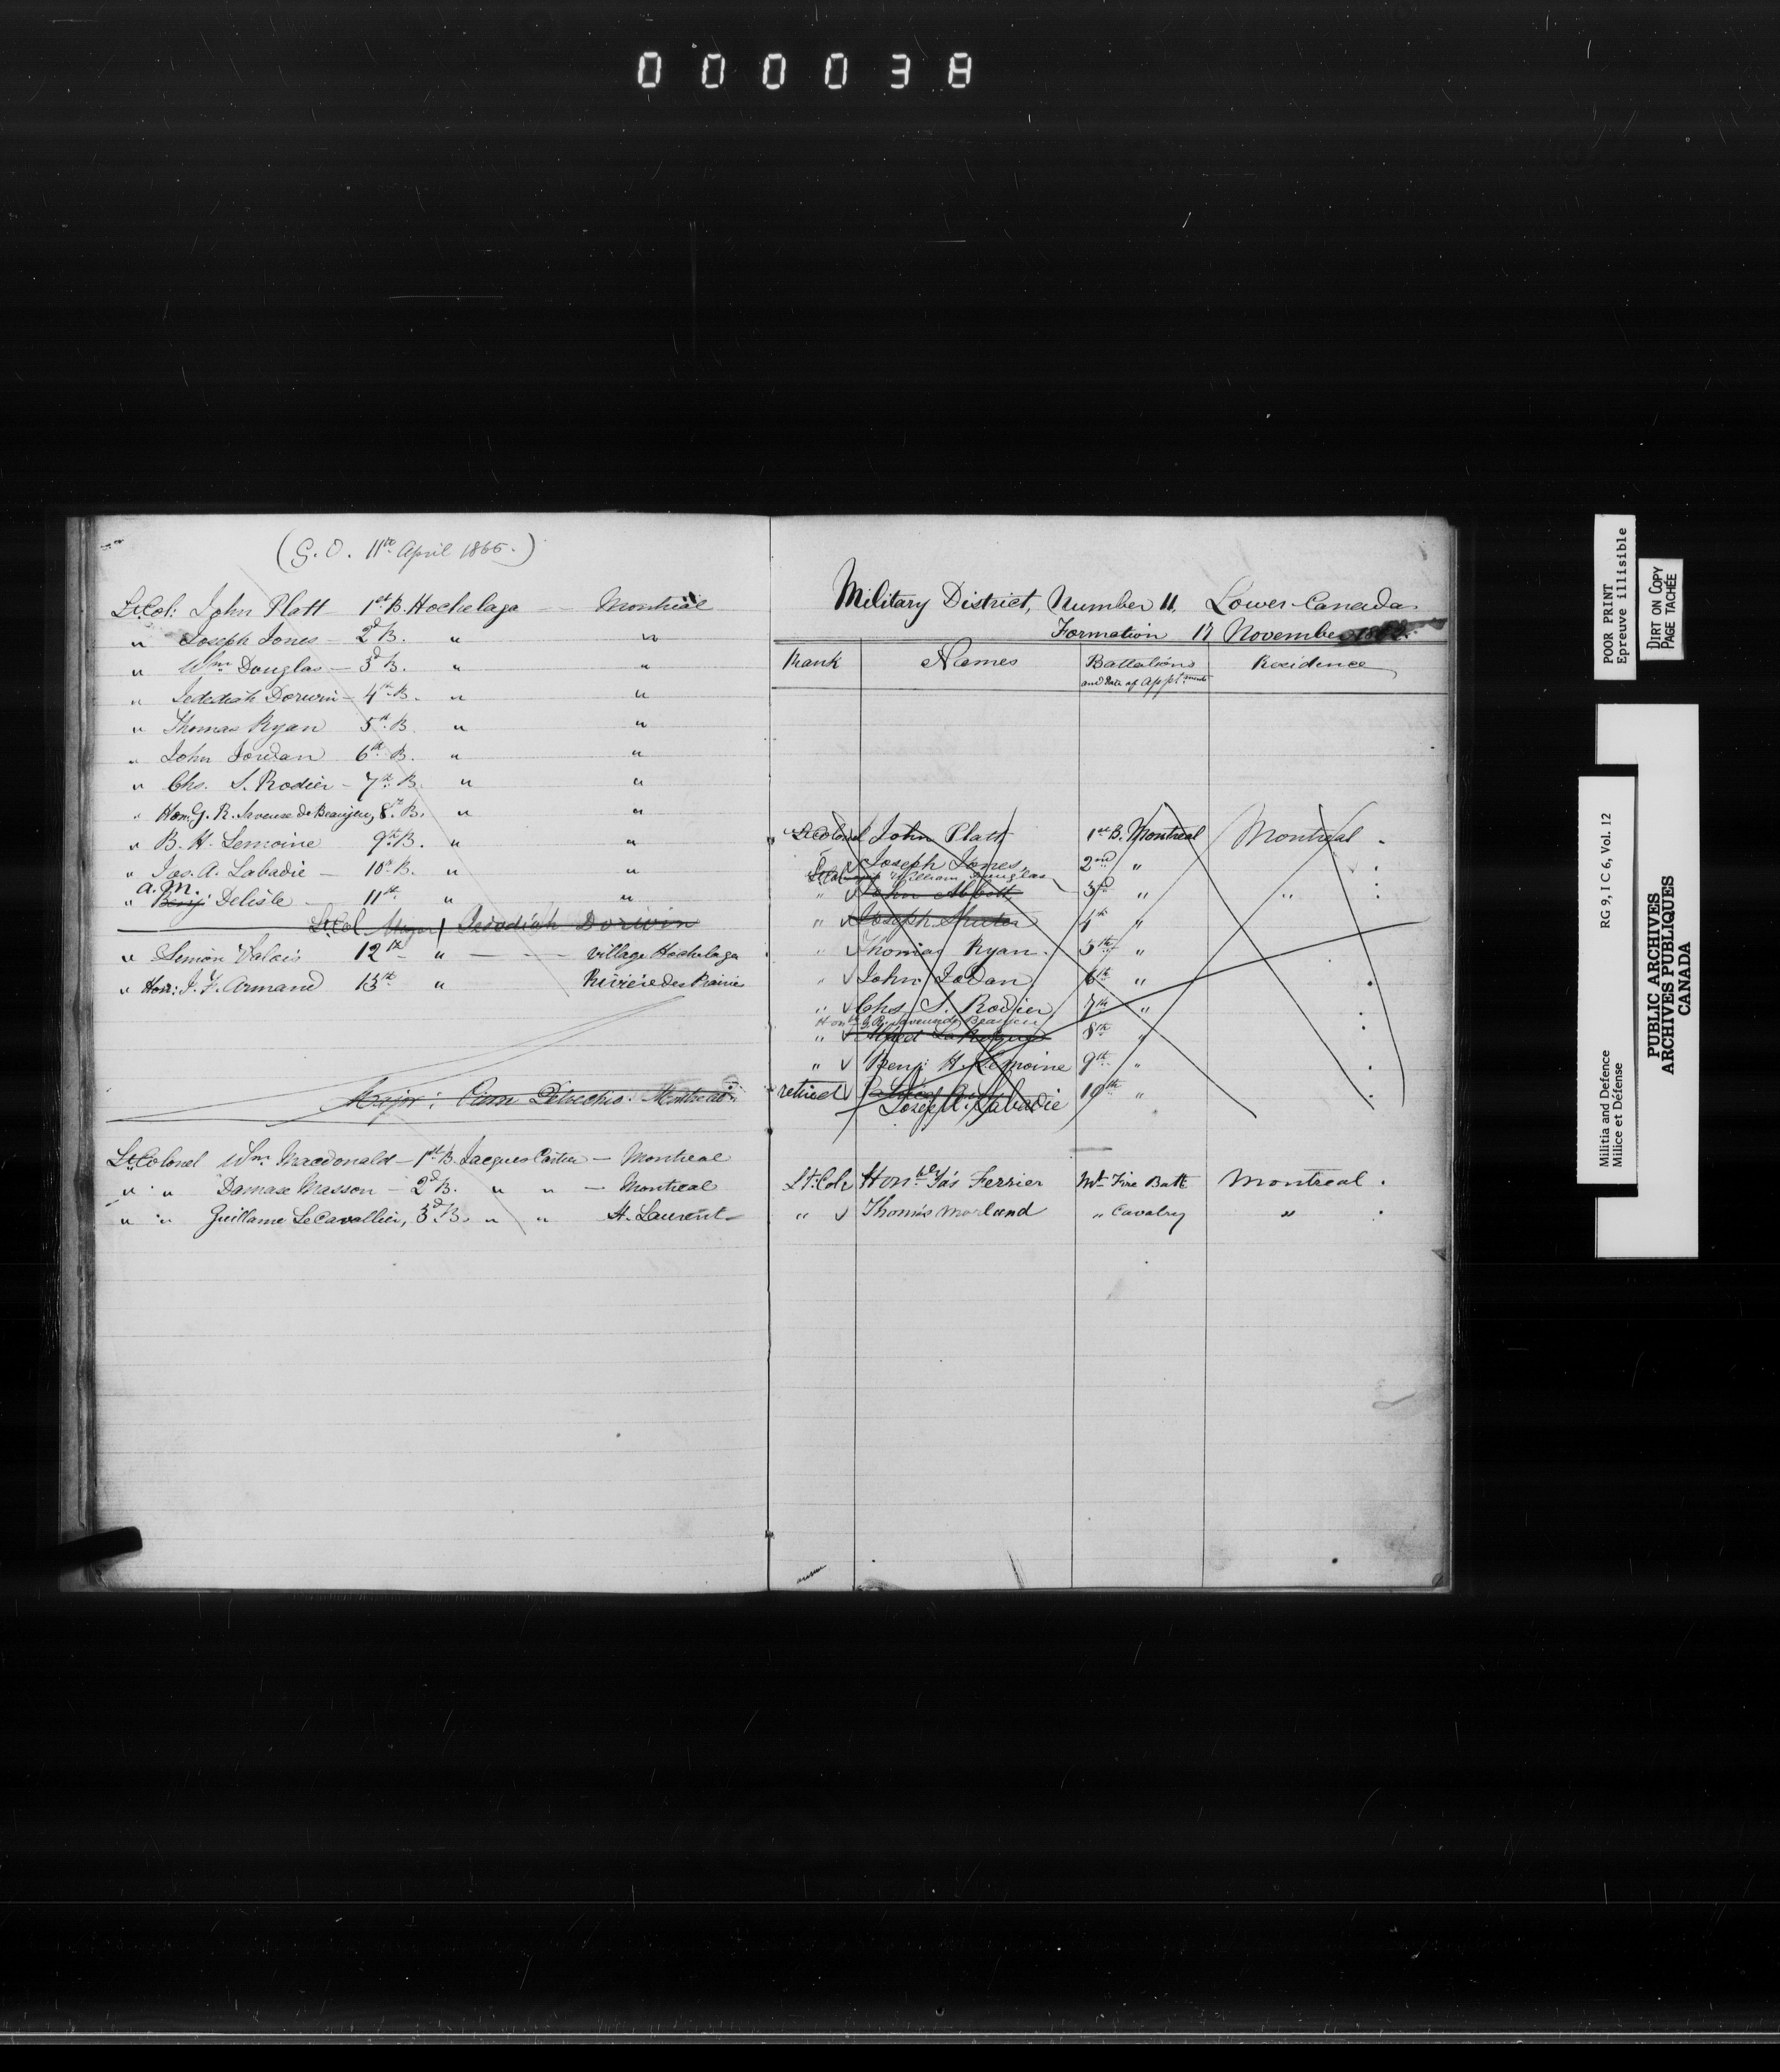 000038
(G. O. 11th April 1865.)
Lt Col: John Platt 1st B. Hochelaga — Montreal
" Joseph Jones — 2d B. " "
" Wm Douglas — 3d B. " "
" Jedediah Dorwin — 4th B. " "
" Thomas Ryan 5th B. " "
" John Jordan 6th B. " "
" Chs. S. Rodier — 7th B. " "
" Hon. G. R. Saveuse de Beaujeu, 8th B. " "
" B. H. Lemoine 9th B. " "
" Jos. A. Labadie — 10th B. " "
A. M.
" Benj. Delisle — 11th " "
Lt Col Major Jedediah Dorwin
" Simon Valois 12th " — Village Hochelaga
" Hon: J. F. Armand 13th " Rivière des Prairies
Major: Montreal
Lt Colonel Wm Macdonald — 1st B. Jacques Cartier — Montreal
" " Damase Masson — 2d B. " " — Montreal
" " Guillame LeCavallier, 3d B. " " St. Laurent
Military District, Number 11, Lower Canada
Formation 17 November
Rank Names Battalions and date of Appts Residence
Lt Colonel John Platt 1st B. Montreal Montreal
Joseph Jones 2nd "
Lt Col William Douglas
" John Abbott 3d " "
" Joseph Shuter 4th "
" Thomas Ryan 5th "
" John Jordan 6th "
" Chs. S. Rodier 7th "
Honble G. R. Saveuse de Beaujeu
" Alfred LaRocque 8th "
" Benj. H. Lemoine 9th "
retired 10th "
Joseph A. Labadie
Lt: Col: Honble Jas Ferrier Ml Fire Batt Montreal
" Thomas Morland " Cavalry "
POOR PRINT
Epreuve illisible
DIRT ON COPY
PAGE TACHÉE
Militia and Defence
Milice et Défense
RG 9, I C 6, Vol. 12
PUBLIC ARCHIVES
ARCHIVES PUBLIQUES
CANADA